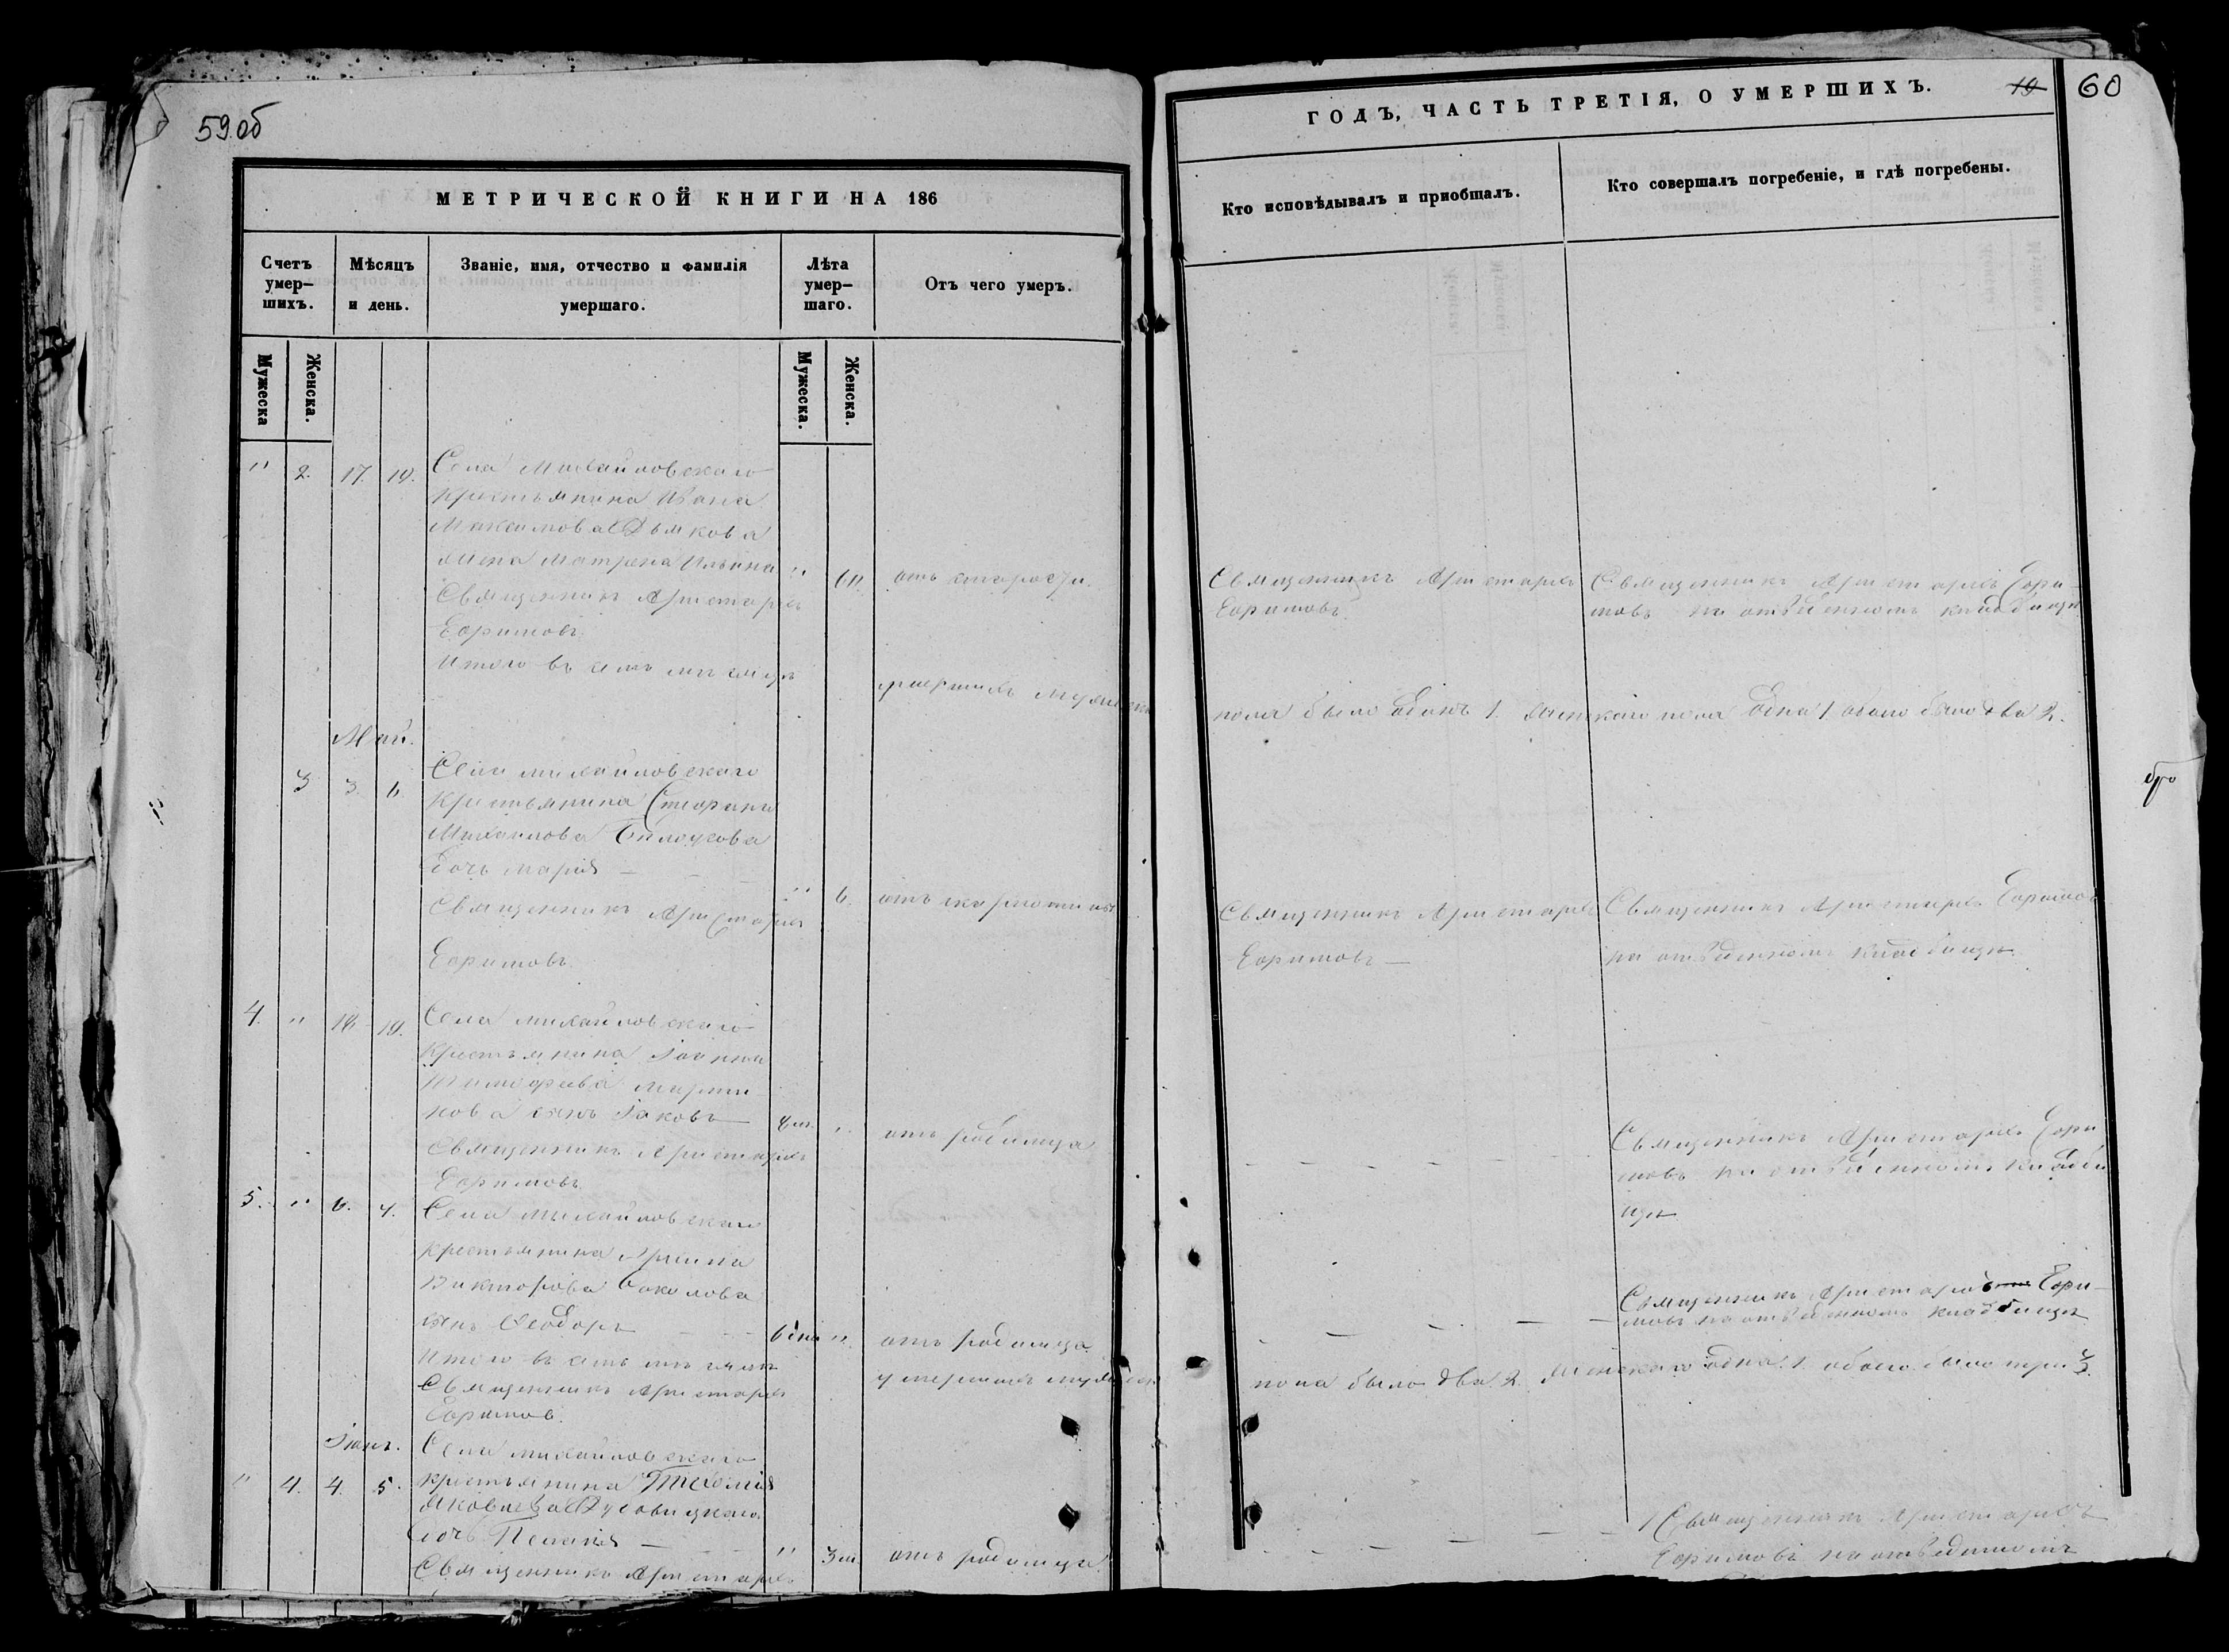 59об
МЕТРИЧЕСКОЙ КНИГИ НА 186
Счетъ умер-шихъ.
Мѣсяцъ и день.
Званіе, имя, отчество и фамилія умершаго.
Лѣта умер-шаго.
Отъ чего умеръ.
Мужеска
Женска.
Мужеска.
Женска.
" 2. 17. 19. Села Михайловскаго
крестьянина Ивана
Максимова Дьякова
жена Матрена Ильина " 60. отъ старости.
Священникъ Аристархъ
Ефимовъ.
Итого въ семъ мѣсяцѣ
умершихъ мужеска
Май.
3 3. 6. Села Михайловскаго
крестьянина Стефана
Михаилова Бѣлоусова
дочь Марія — " 6.
Священникъ Аристархъ
Ефимовъ
4. " 18. 19. Села Михайловскаго
крестьянина Іоанна
Тимофеева Марти
нова сынъ Іаковъ " отъ родимца
Священникъ Аристархъ
Ефимовъ
5. " 6. 7. Села Михайловскаго
крестьянина
Викторова Соколова
сынъ Феодоръ — — " отъ родимца
Итого въ семъ мѣсяцѣ
умершихъ мужеска
Священникъ Аристархъ
Ефимов.
Іюнь. Села Михайловскаго
" 4. 4. 5. крестьянина
Яковлева
дочь Пелагія — — " отъ родимца
Священникъ Аристархъ
ГОДЪ, ЧАСТЬ ТРЕТІЯ, О УМЕРШИХЪ.
60
Кто исповѣдывалъ и пріобщалъ.
Кто совершалъ погребеніе, и гдѣ погребены.
Священникъ Аристархъ
Ефимовъ.
Священникъ Аристархъ Ефи-
мовъ на отведенномъ кладбищѣ
пола было одинъ 1. женскаго пола одна 1 обоего было два 2.
Священникъ Аристархъ
Ефимовъ —
Священникъ Аристархъ Ефимов
на отведенномъ кладбищѣ.
Священникъ Аристархъ Ефи
мовъ на отведенномъ кладби
щѣ
Священникъ Аристархъ Ефи-
мовъ на отведенномъ кладбищѣ
пола было два 2. женскаго одна 1. обоего было три 3.
Священникъ Аристархъ
Ефимовъ на отведенномъ